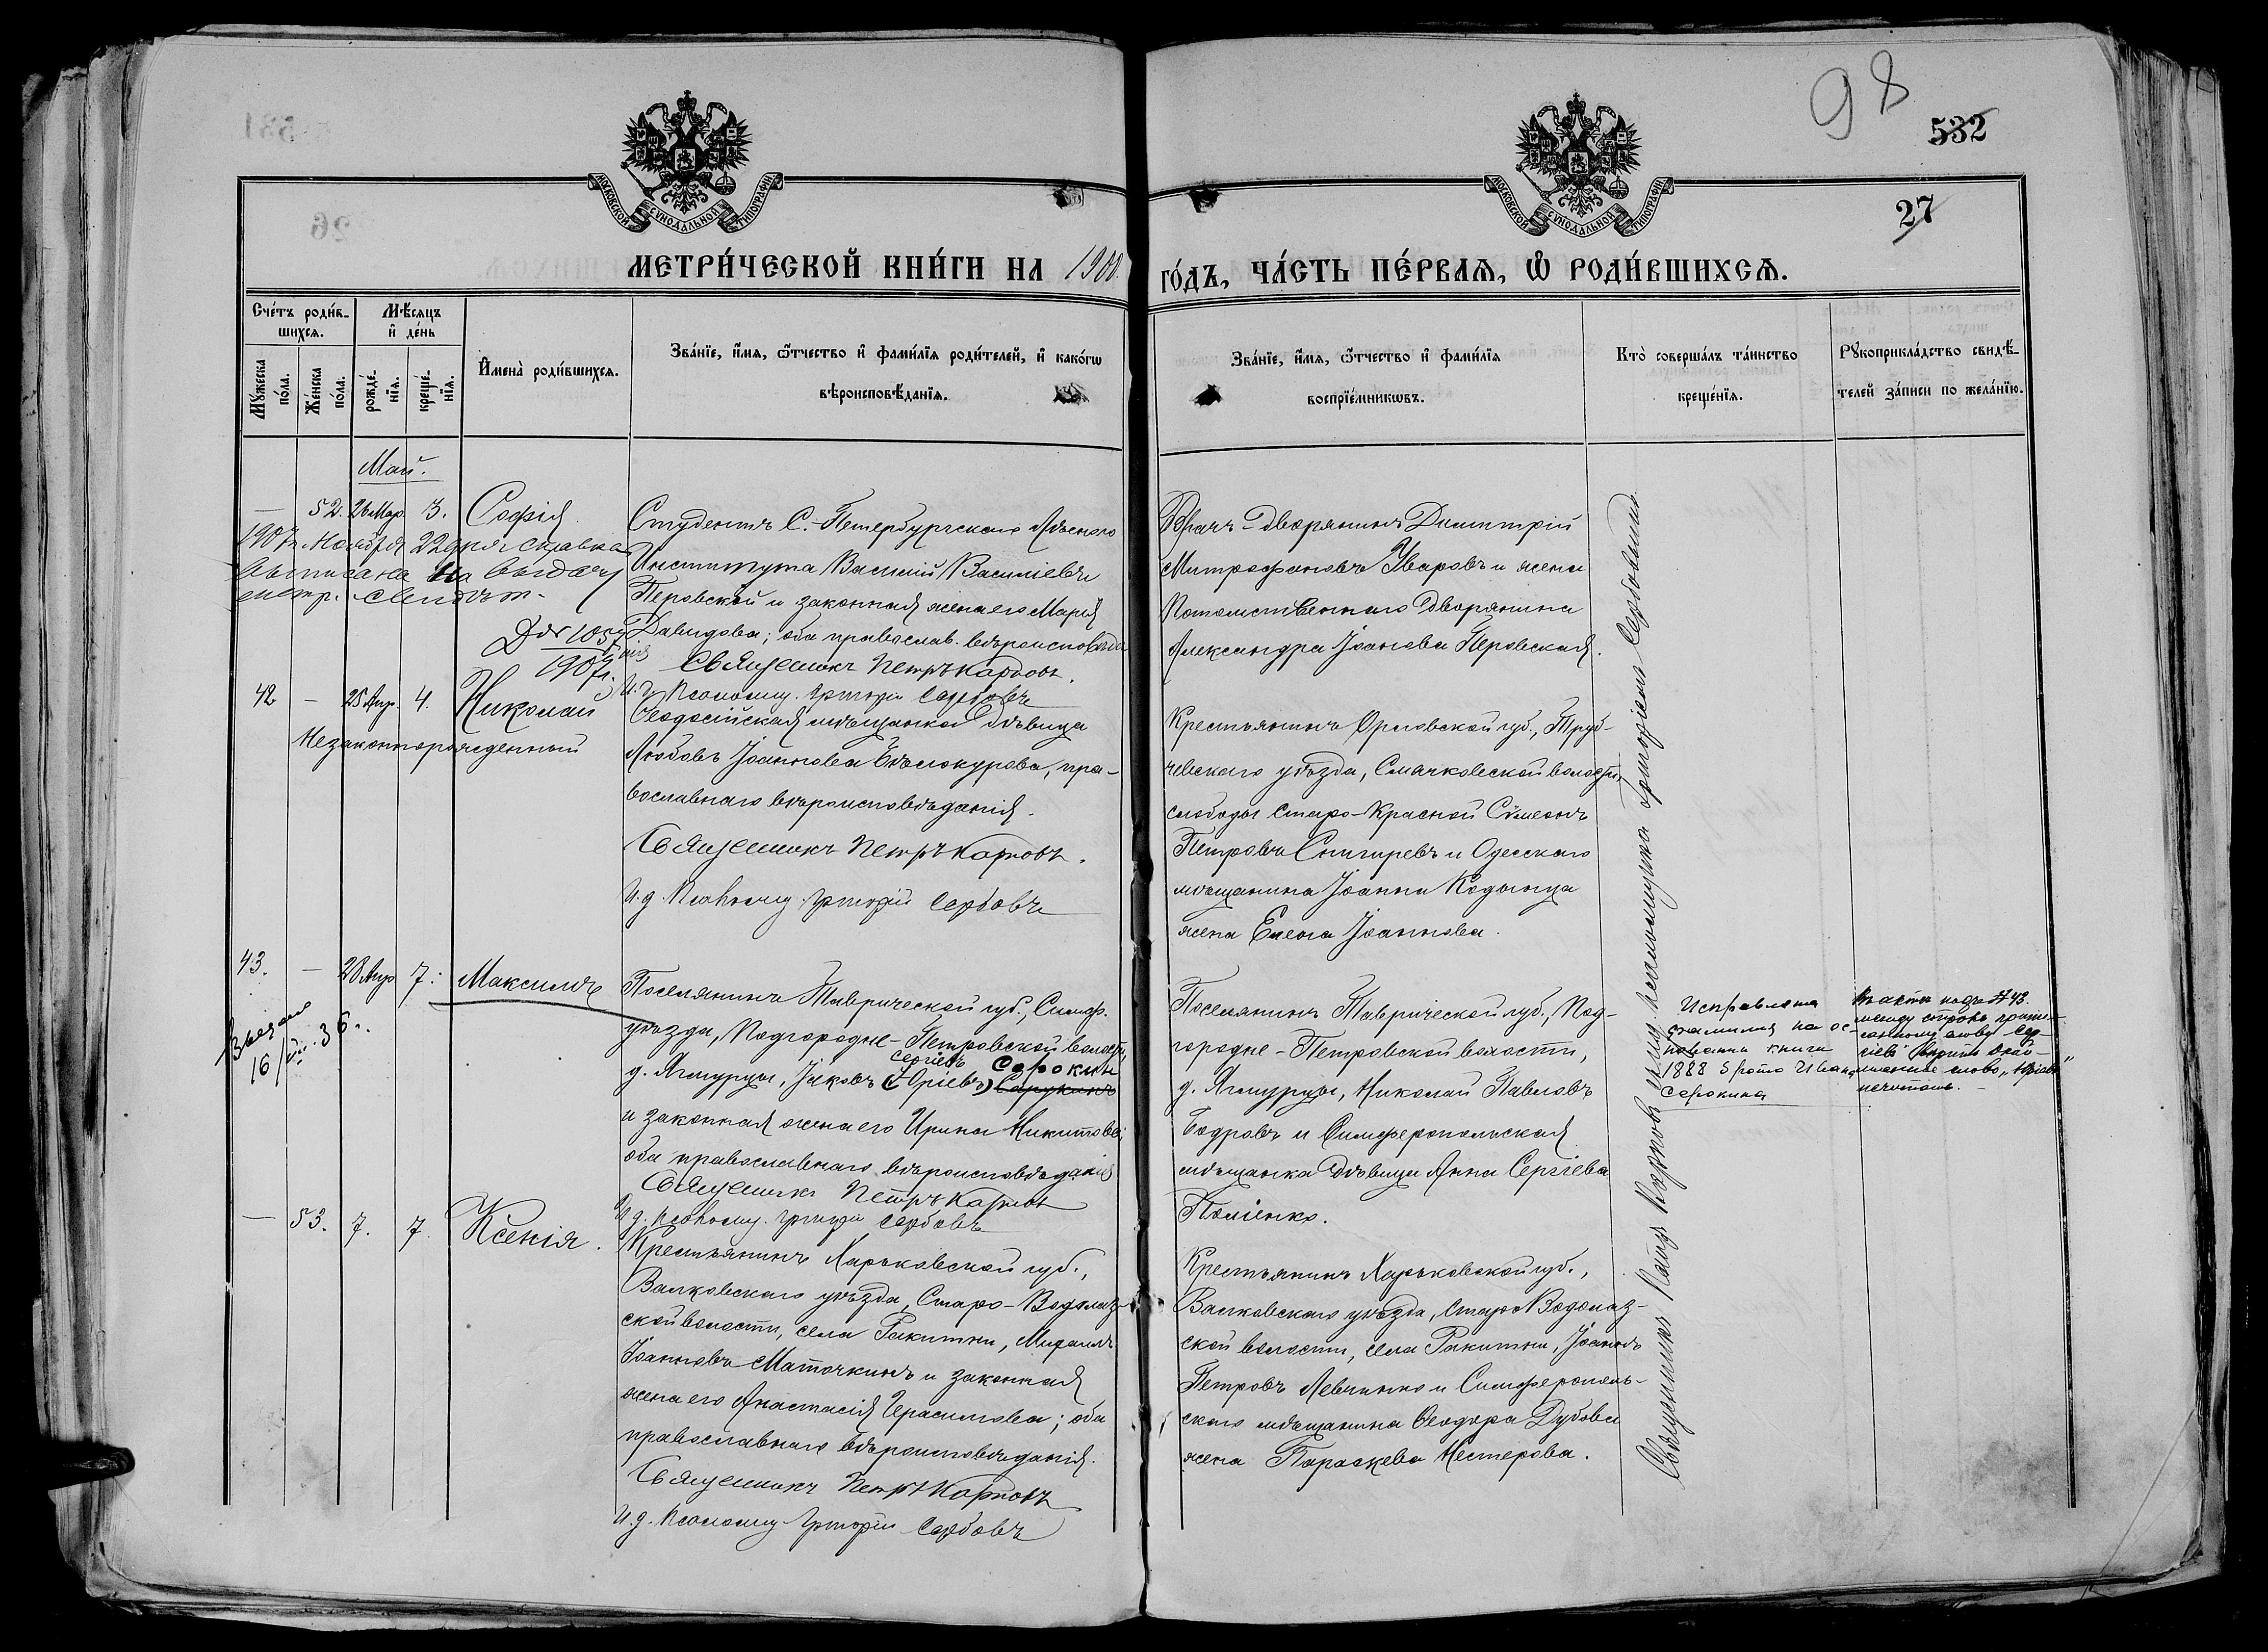 98
532
27
МОСКОВСКОЙ СУНОДАЛЬНОЙ ТИПОГРАФІИ
МОСКОВСКОЙ СУНОДАЛЬНОЙ ТИПОГРАФІИ
МЕТРИ́ЧЕСКОЙ КНИ́ГИ НА 1900
ГО́ДЪ, ЧА́СТЬ ПЕ́РВАЯ, Ѡ РОДИ́ВШИХСЯ.
Сче́тъ роди́в-
шихся.
Мѣ́сяцъ
и҆ де́нь
Мꙋ́жеска
по́ла.
Же́нска
по́ла.
рожде́-
нїѧ.
креще́-
нїѧ.
И҆мена̀ роди́вшихся.
Зва́нїе, и҆́мя, ѻ҆́тчество и҆ фами́лїя роди́телей, и҆ како́гѡ
вѣроисповѣ́данїя.
Зва́нїе, и҆́мя, ѻ҆́тчество и҆ фами́лїя
воспрїе́мникѡвъ.
Кто̀ соверша́лъ та́инство
креще́нїя.
Рꙋкоприкла́дство свидѣ́-
телей за́писи по жела́нїю.
Май.
— 52. 26 Мар. 3. Софія.
1907 г. Ноября 22 дня справка
выписана на выдачу
метр. свидѣт.
1907 г.
Студентъ С.-Петербургскаго Лѣсного
Института Василій Василіевъ
Перовской и законная жена его Марія
Давидова; оба православ. вѣроисповѣда
нія
Священникъ Петръ Карповъ.
И. д. Псаломщ. Григорій Сербовъ
Врачъ-дворянинъ Димитрій
Митрофановъ Уваровъ и жена
Потомственнаго Дворянина
Александра Іоанова Перовская.
42 — 25 Апр. 4. Николай
Незаконнорожденный
Ѳеодосійская мѣщанка дѣвица
Любовь Іоаннова Бѣлокурова, пра-
вославнаго вѣроисповѣданія.
Священникъ Петръ Карповъ.
И. д. Псаломщ. Григорій Сербовъ
Крестьянинъ Орловской губ., Труб-
чевскаго уѣзда, Смячковской волости,
слободы Старо-Красной Сѵмеонъ
Петровъ Снигиревъ и Одесскаго
мѣщанина Іоанна Кодынца
жена Елена Іоаннова.
43. — 28 Апр 7. Максимъ
16/ 36 г.
Поселянинъ Таврической губ., Симф.
уѣзда, Подгородне-Петровской волости,
Сергіевъ Сорокинъ
д. Ягмурцы, Іаковъ (Юріевъ) Сарукинъ
и законная жена его Ирина Никитова;
оба православнаго вѣроисповѣданія
Священникъ Петръ Карповъ
И. д. Псаломщ. Григорій Сербовъ
Поселянинъ Таврической губ., Под-
городне-Петровской волости,
д. Ягмурцы, Николай Павловъ
Бодровъ и Симферопольская
мѣщанка дѣвица Анна Сергіева
Поліенко.
Исправлена
фамилия на ос-
новании книги
1888
Сорокина
Въ актѣ подъ № 43.
между строкъ припи-
санному слову „Сер-
гіевъ" вѣрить
слово „Юріевъ"
не читать.
— 53. 7. 7. Ксенія.
Крестьянинъ Харьковской губ.,
Валковскаго уѣзда, Старо-Водолаз-
ской волости, села Ракитни, Михаилъ
Іоанновъ Маточкинъ и законная
жена его Анастасія Герасимова; оба
православнаго вѣроисповѣданія.
Священникъ Петръ Карповъ
И. д. Псаломщ. Григорій Сербовъ
Крестьянинъ Харьковской губ.,
Валковскаго уѣзда, Старо-Водолаз-
ской волости, села Ракитни, Іоаннъ
Петровъ Левчинко и Симферополь-
скаго мѣщанина Ѳеодора Дубова
жена Параскева Нестерова.
Священникъ Петръ Карповъ и и. д. псаломщика Григорій Сербовъ